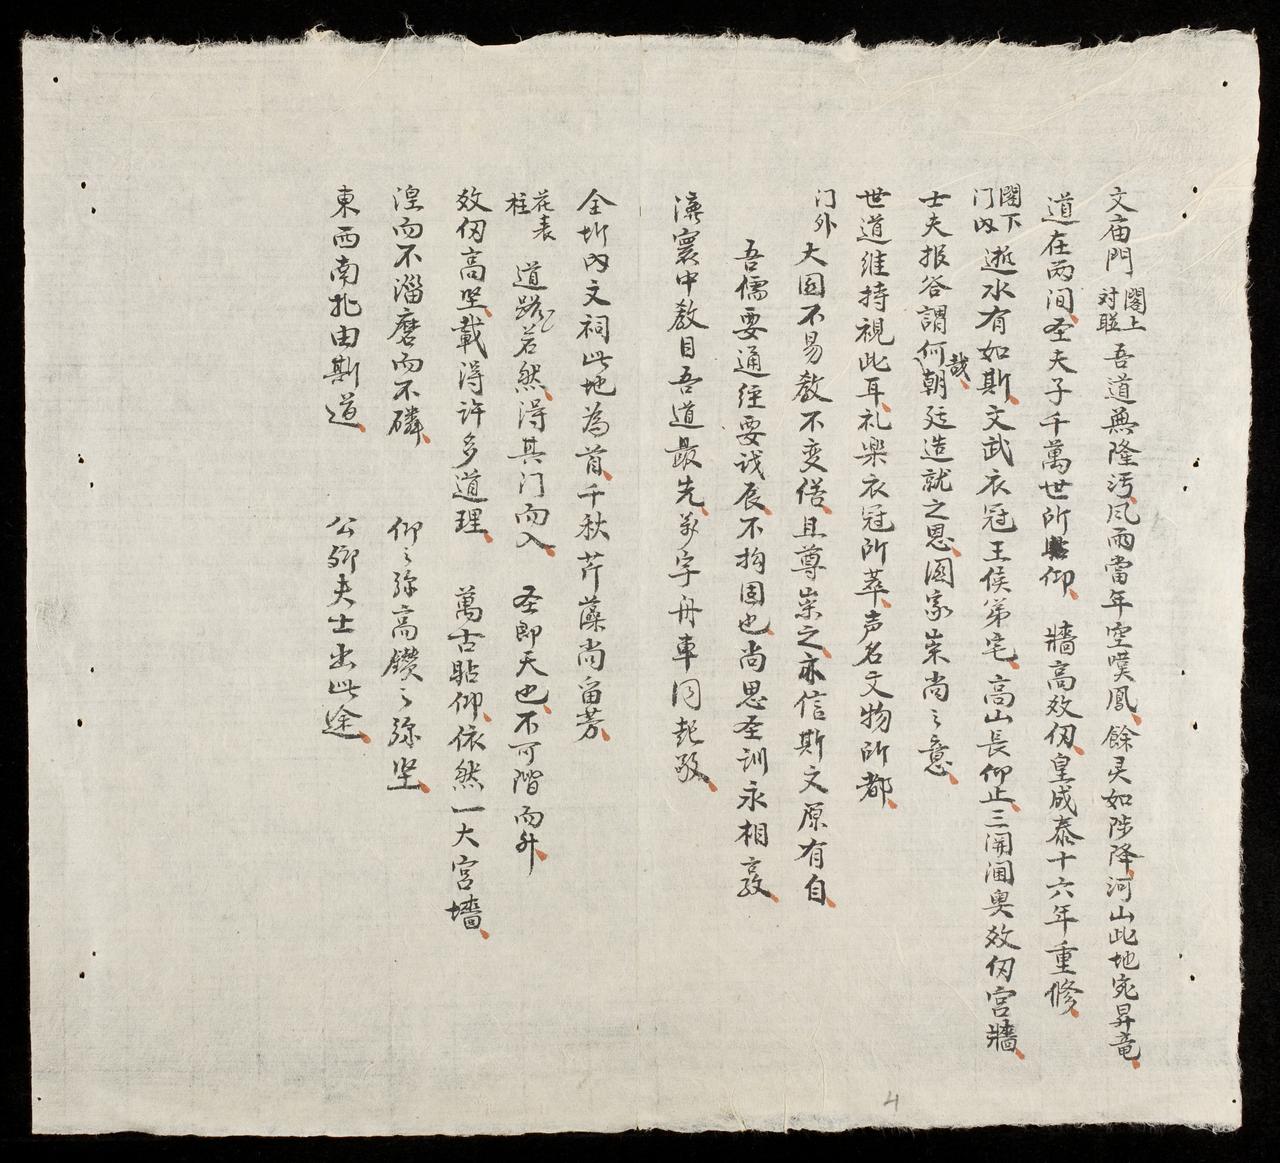 文庙門閣上对聯 吾道無隆污风雨當年空嘆鳳餘灵如陟降河山此地宛昇竜
道在两间圣夫子千萬世所瞻仰 牆高效仞皇成泰十六年重修
閣下门內 逝水有如斯文武衣冠王侯第宅高山長仰止三開閫奧效仞宫牆
士夫报答謂何哉朝廷造就之恩国家崇尚之意
世道维持視此耳礼樂衣冠所萃声名文物所都
门外 大国不易教不变俗且尊崇之亦信斯文原有自
吾儒要通经要识辰不拘固也尚思圣訓永相敦
漢寰中教目吾道最先萬字舟車同起敬
全圻內文祠此地為首千秋芹藻尚留芳
花表柱 道路若然得其门而入 圣即天也不可階而升
效仞高坚載得许多道理 萬古瞻仰依然一大宫墻
湼而不淄磨而不磷 仰之弥高鑽之弥坚
東西南北由斯道 公卿夫士出此途
4